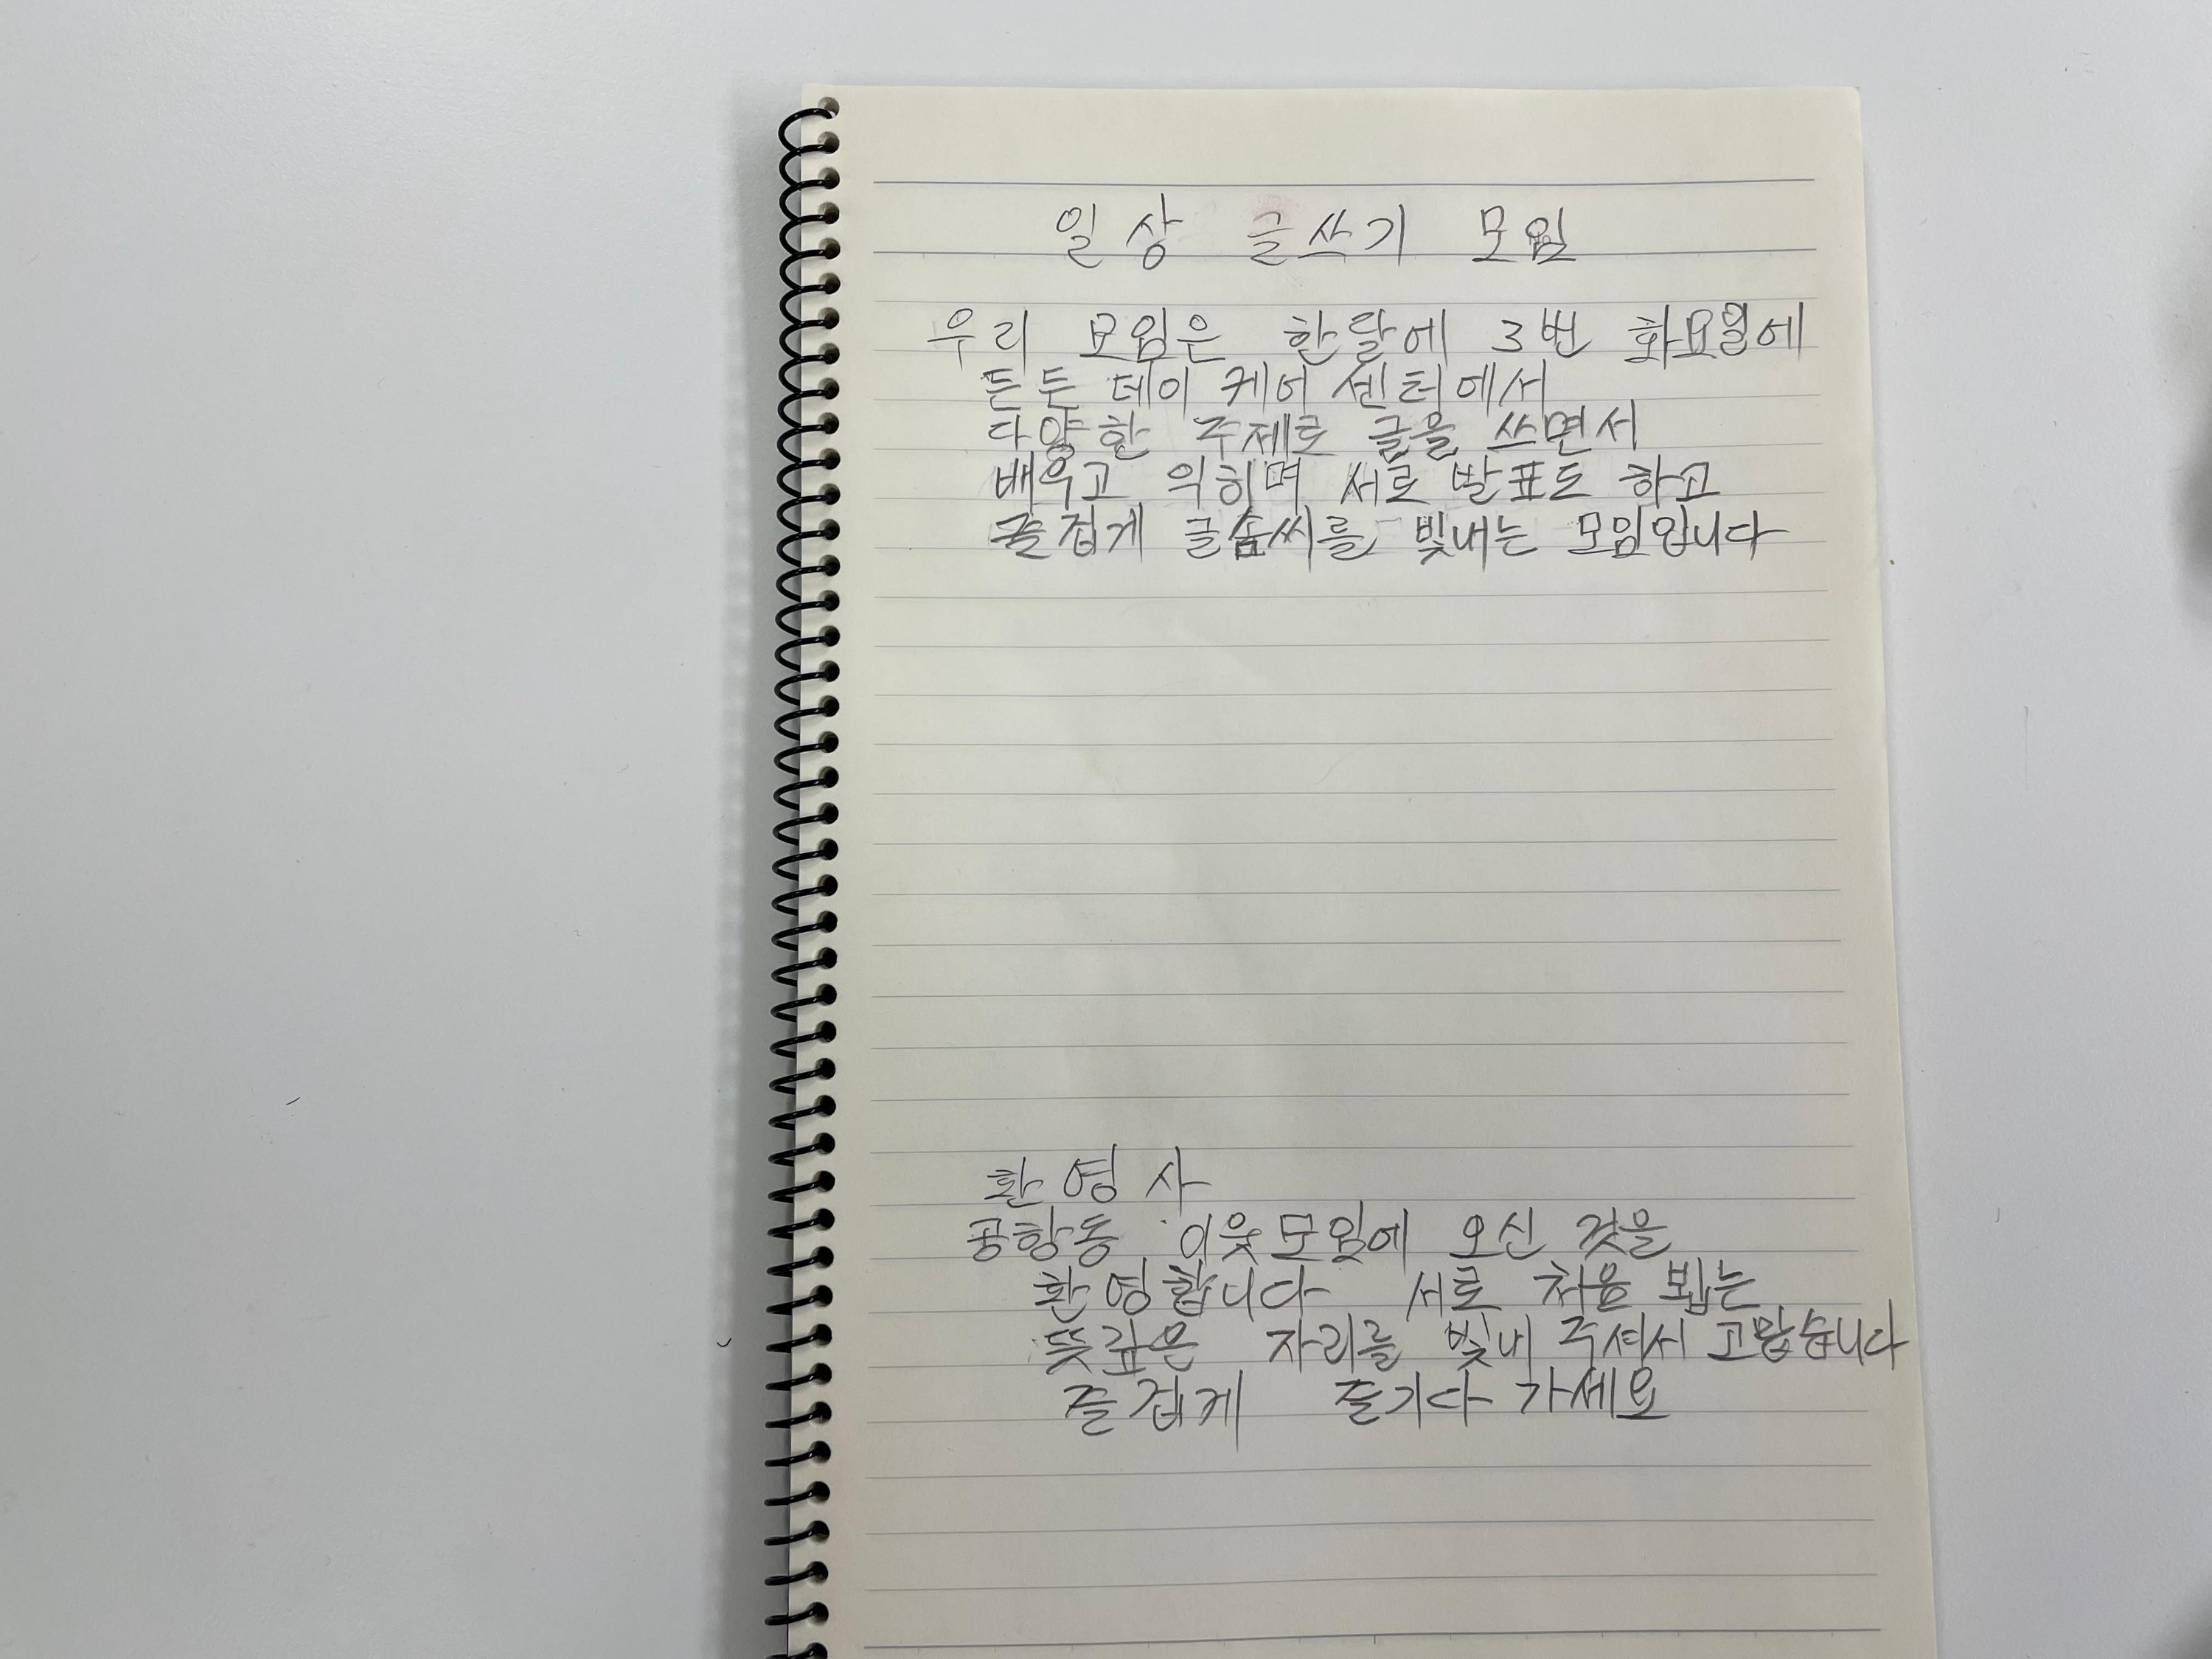 일상 글쓰기 모임
우리 모임은 한달에 3번 화요일에
든든 데이 케어 센터에서
다양한 주제로 글을 쓰면서
배우고 익히며 서로 발표도 하고
즐겁게 글솜씨를 빛내는 모임입니다
환영사
공항동 이웃모임에 오신 것을
환영합니다 서로 처음 뵙는
뜻깊은 자리를 빛내 주셔서 고맙습니다
즐겁게 즐기다 가세요